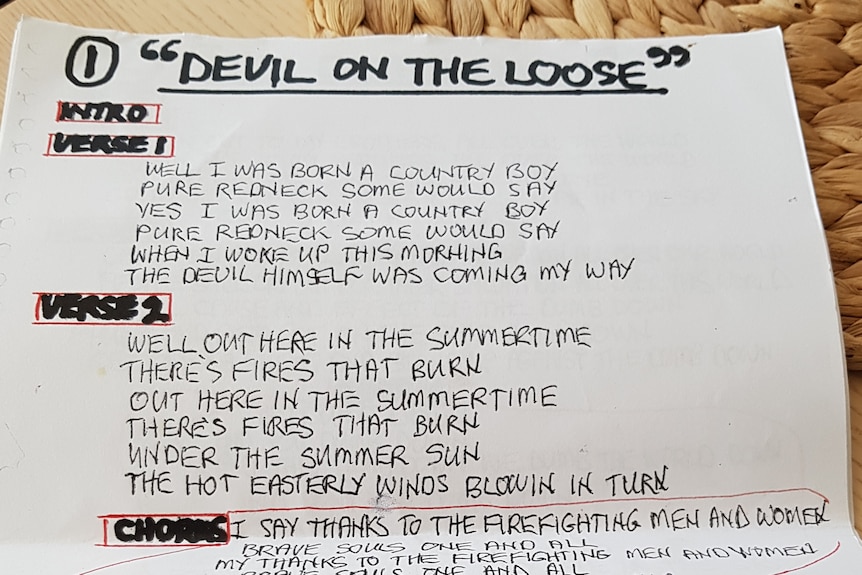 ① "DEVIL ON THE LOOSE"
INTRO
VERSE 1
WELL I WAS BORN A COUNTRY BOY
PURE REDNECK SOME WOULD SAY
YES I WAS BORN A COUNTRY BOY
PURE REDNECK SOME WOULD SAY
WHEN I WOKE UP THIS MORNING
THE DEVIL HIMSELF WAS COMING MY WAY
VERSE 2
WELL OUT HERE IN THE SUMMERTIME
THERE'S FIRES THAT BURN
OUT HERE IN THE SUMMERTIME
THERE'S FIRES THAT BURN
UNDER THE SUMMER SUN
THE HOT EASTERLY WINDS BLOWIN IN TURN
CHORUS I SAY THANKS TO THE FIREFIGHTING MEN AND WOMEN
BRAVE SOULS ONE AND ALL
MY THANKS TO THE FIREFIGHTING MEN AND WOMEN
BRAVE SOULS ONE AND ALL